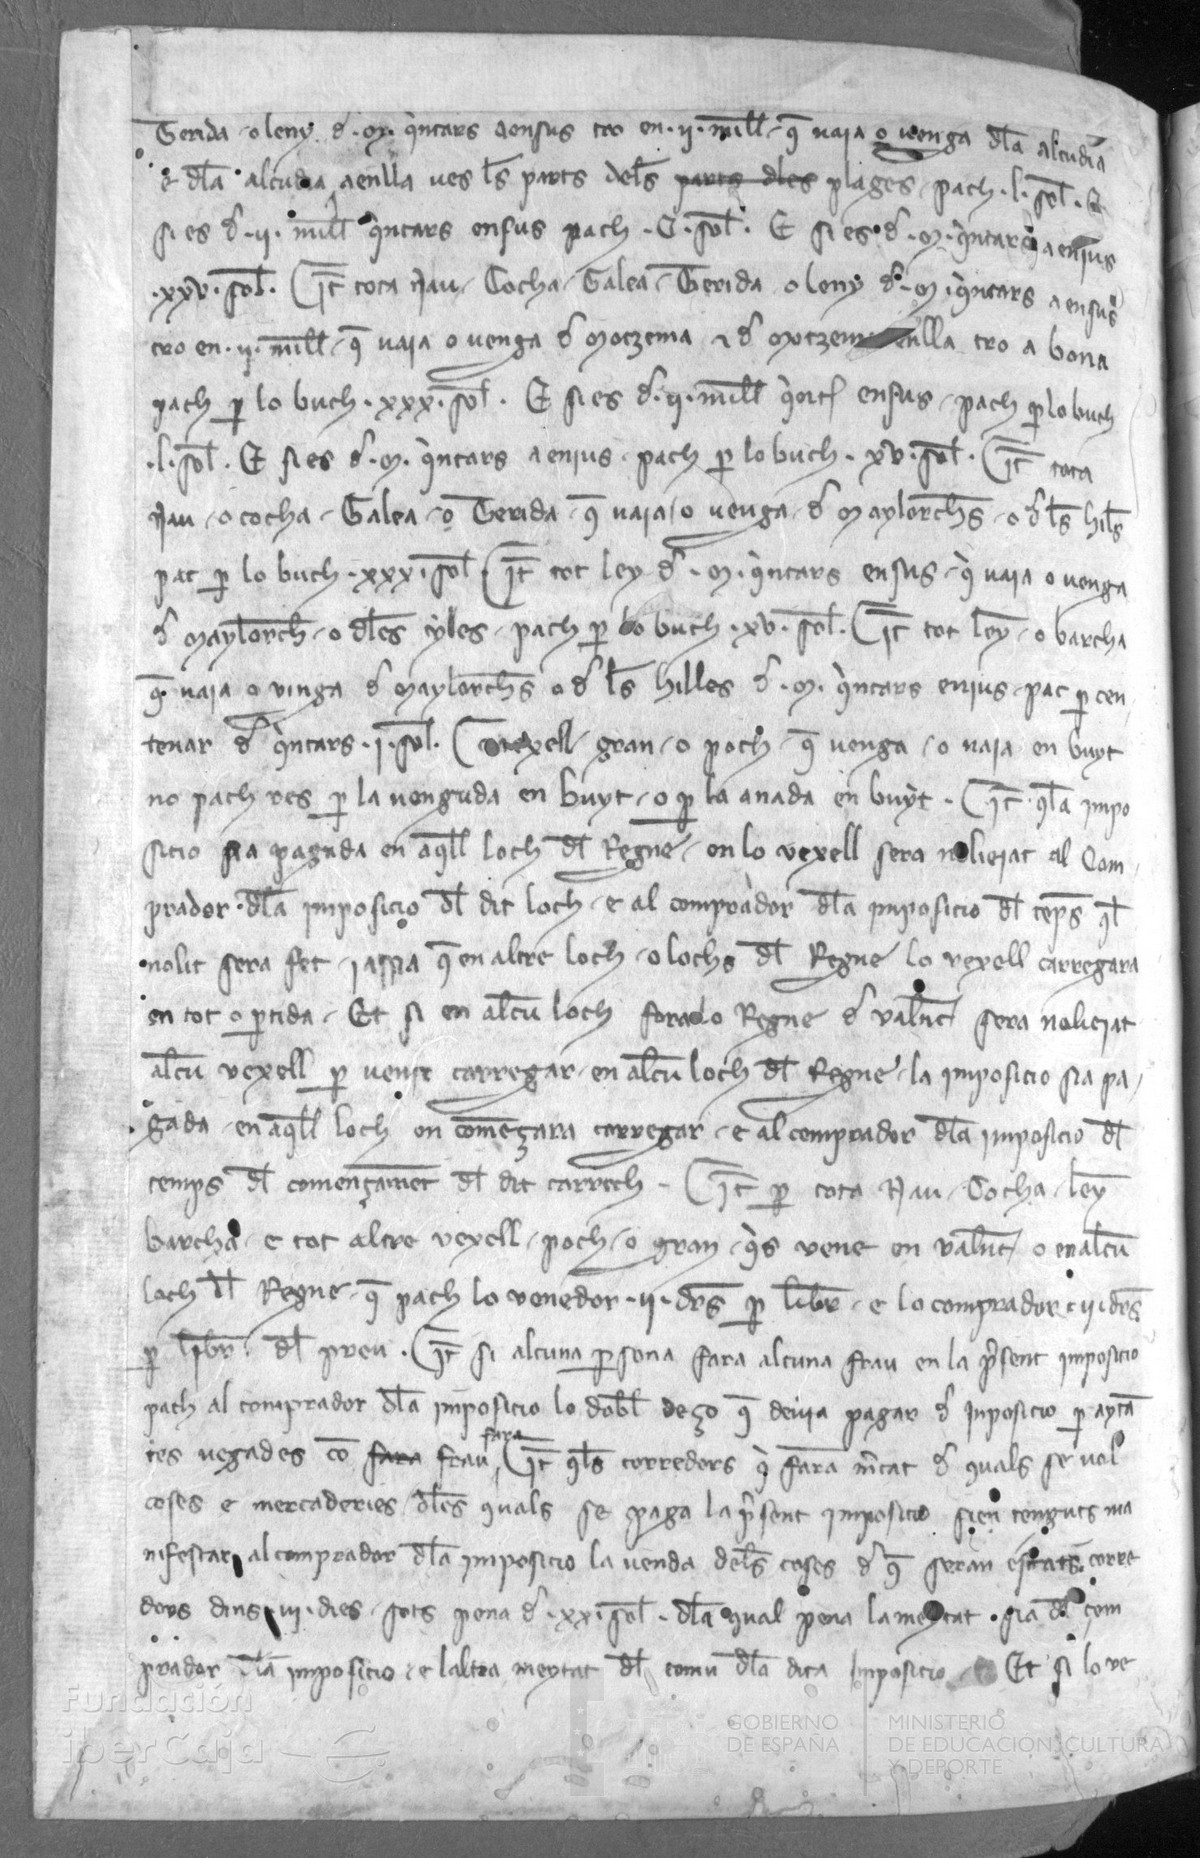 Terida o leny d .M. qintars aensus tro en .ii. mill q vaia o venga dla alcudia
e dla alcudia aenlla ves ls parts dels parts dles plages pach .l. sol. E
si es d .ii. mill qintars ensus pach .C. sol. E si es d .M. qintars aenius
.xxv. sol. It tota Nau Cocha Galea Terida o leny d .M. qintars aensus
tro en .ii. mill q vaia o venga d Moczema enlla tro a bona
pach p lo buch .xxx. sol. E si es d .ii. mill qint ensus pach p lo buch
.l. sol. E si es d .M. qintars aenius pach p lo buch .xv. sol. It tota
Nau o cocha Galea o Terida q vaia o venga d Maylorchs o d ls hils
pac p lo buch .xxx. sol It tot ley d .M. qintars ensus q vaia o venga
d Maylorch o dles yles pach p lo buch .xv. sol. It tot ley o barcha
q vaia o vinga d Maylorchs o d ls hilles d .M. qintars enius pac p cen
tenar d qintars .i. sol. vexell gran o poch q venga o vaia en buyt
no pach res p la venguda en buyt o p la anada en buyt. It qla impo
sicio sia pagada en aqll loch dl Regne on lo vexell sera noliejat al Com
prador dla imposicio dl dit loch e al comprador dla imposicio dl temps ql
nolit sera fet iassia q en altre loch o lochs dl Regne lo vexell carregara
en tot o ptida. Et si en alcu loch fora lo Regne d valnc sera noliejat
alcu vexell p venir carregar en alcu loch dl Regne la imposicio sia pa
gada en aqll loch on comẽçara carregar e al comprador dla imposicio dl
temps dl començamet dl dit carrech. It p tota Nau Cocha ley
barcha e tot altre vexell poch o gran qis vene en valnc o en alcu
loch dl Regne q pach lo venedor .ii. drs p libr e lo comprador .ii. drs
p libr dl preu. It si alcuna psona fara alcuna frau en la psent imposicio
pach al comprador dla imposicio lo dobl dezo q devia pagar d Inposicio p ayta
tes vegades co fara frau fara It qls corredors qi fara mcat d quals se vol
coses e mercaderies dles quals se paga la psent imposicio sien tenguts ma
nifestar al comprador dla imposicio la venda dels coses d q seran estats corre
dors dins .iii. dies sots pena d .xx. sol. dla qual pena la meytat sia dl com
prador dla imposicio e laltra meytat dl comu dla dita Imposicio Et si lo ve
Fundación
iberCaja
GOBIERNO
DE ESPAÑA
MINISTERIO
DE EDUCACIÓN, CULTURA
Y DEPORTE